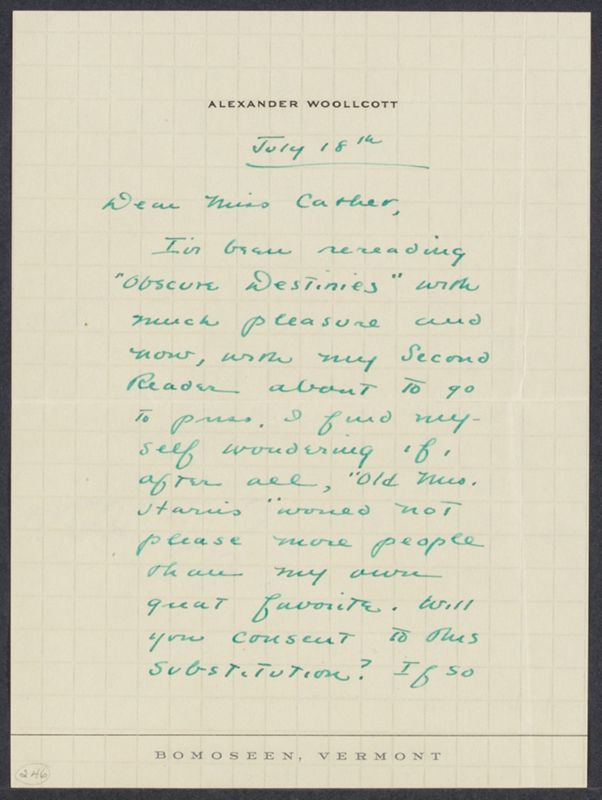 ALEXANDER WOOLLCOTT
July 18th
Dear Miss Cather,
I've been rereading
"Obscure Destinies" with
much pleasure and
now, with my Second
Reader about to go
to press, I find my-
self wondering if,
after all, "Old Mrs.
Harris" would not
please more people
than my own
great favorite. Will
you consent to this
substitution? If so
BOMOSEEN, VERMONT
246